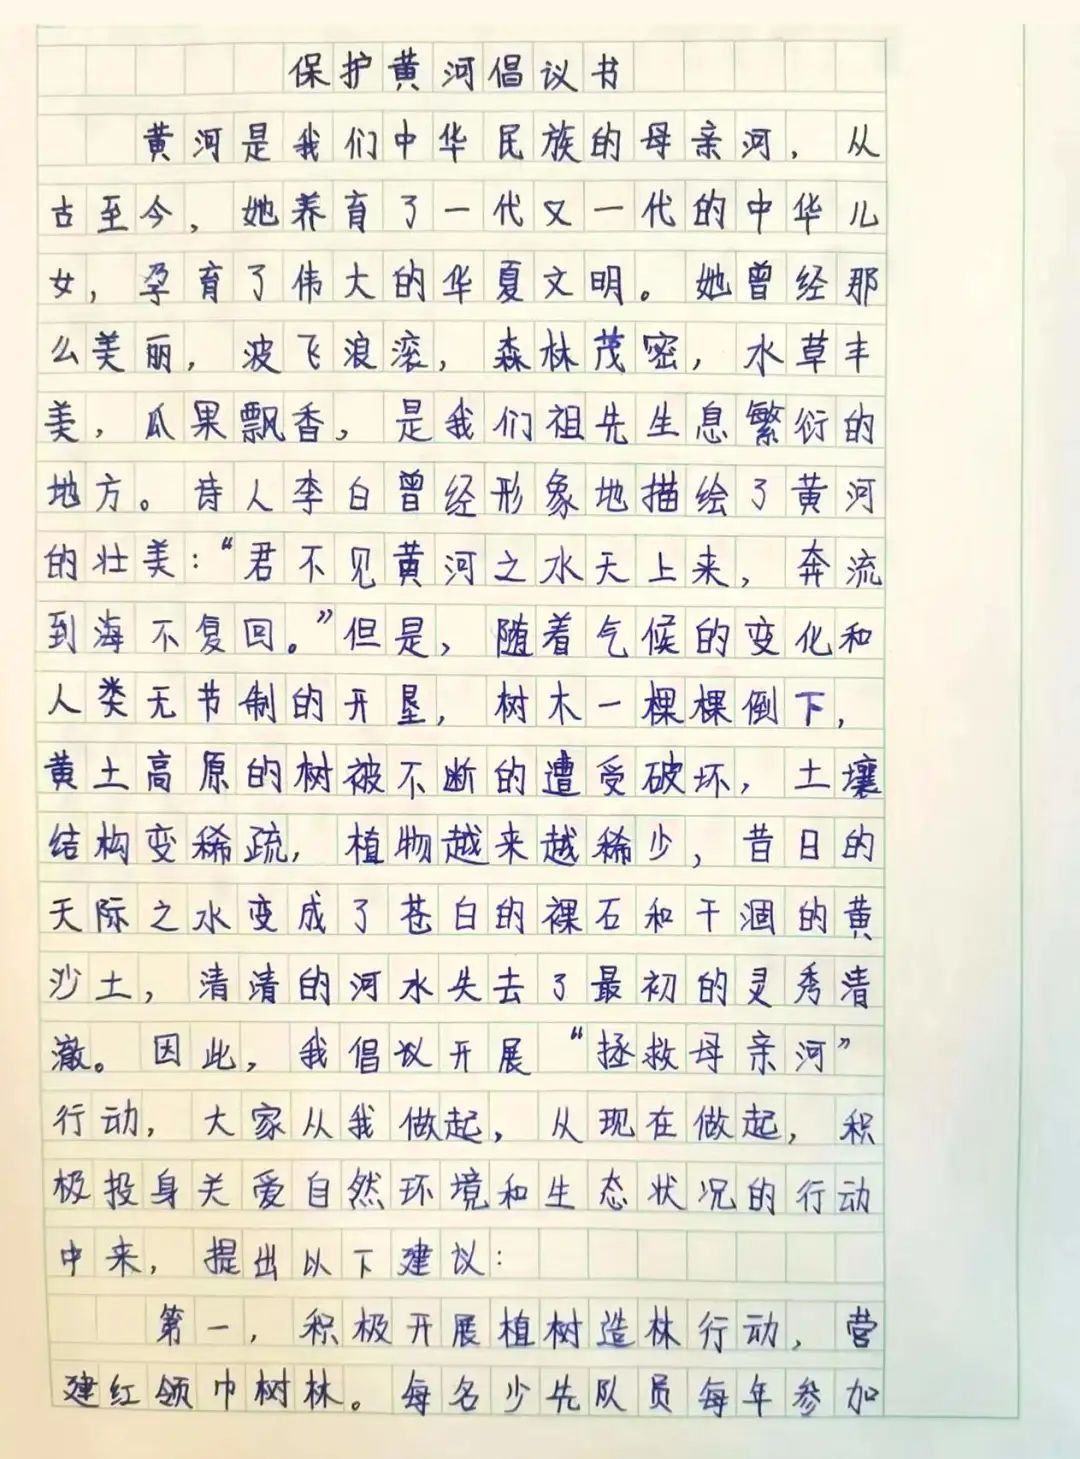 保护黄河倡议书
黄河是我们中华民族的母亲河，从
古至今，她养育了一代又一代的中华儿
女，孕育了伟大的华夏文明。她曾经那
么美丽，波飞浪滚，森林茂密，水草丰
美，瓜果飘香，是我们祖先生息繁衍的
地方。诗人李白曾经形象地描绘了黄河
的壮美：“君不见黄河之水天上来，奔流
到海不复回。”但是，随着气候的变化和
人类无节制的开垦，树木一棵棵倒下，
黄土高原的树被不断的遭受破坏，土壤
结构变稀疏，植物越来越稀少，昔日的
天际之水变成了苍白的裸石和干涸的黄
沙土，清清的河水失去了最初的灵秀清
澈。因此，我倡议开展“拯救母亲河”
行动，大家从我做起，从现在做起，积
极投身关爱自然环境和生态状况的行动
中来，提出以下建议：
第一，积极开展植树造林行动，营
建红领巾树林。每名少先队员每年参加